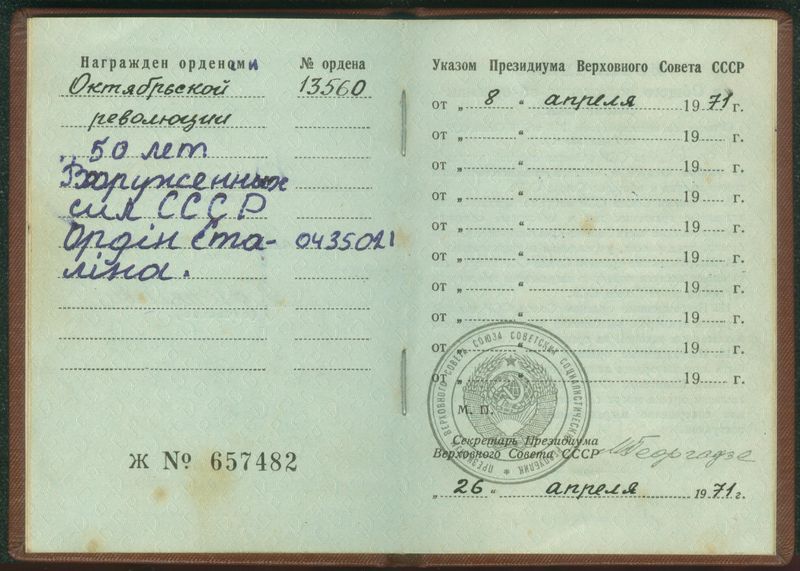 Награжден орденами № ордена
Октябрьской 13560
революции
50 лет
Вооруженных
сил СССР
Ордін Ста- 0435021
ліна.
Ж № 657482
Указом Президиума Верховного Совета СССР
от „ 8 “ апреля 1971 г.
от „ “ 19 г.
от „ “ 19 г.
от „ “ 19 г.
от „ “ 19 г.
от „ “ 19 г.
от „ “ 19 г.
от „ “ 19 г.
от „ “ 19 г.
от „ “ 19 г.
ПРЕЗИДИУМ ВЕРХОВНОГО СОВЕТА СОЮЗА СОВЕТСКИХ СОЦИАЛИСТИЧЕСКИХ РЕСПУБЛИК
М. П.
Секретарь Президиума
Верховного Совета СССР М. Георгадзе
„ 26 “ апреля 1971 г.